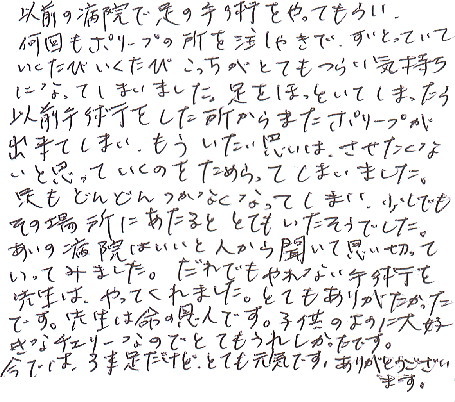 以前の病院で足の手術をやってもらい、
何回もポリープの所を注しゃきで、すいとっていて
いくたびいくたび こっちがとてもつらい気持ち
になってしまいました。足をほっといてしまったら
以前手術をした所からまたポリープが
出来てしまい、もういたい思いは、させたくな
いと思っていくのをためらってしまいました。
足もどんどんつかなくなってしまい、少しでも
その場所にあたると とてもいたそうでした。
あいの病院はいいと人から聞いて思い切って
いってみました。だれでもやれない手術を
先生は、やってくれました。とてもありがたかった
です。先生は命の恩人です。子供のように大好
きなチェリーなのでとてもうれしかったです。
今では、3本足だけど、とても元気です。ありがとうござい
ます。